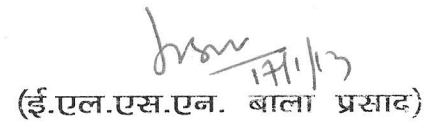 17/1/13
(ई.एल.एस.एन. बाला प्रसाद)